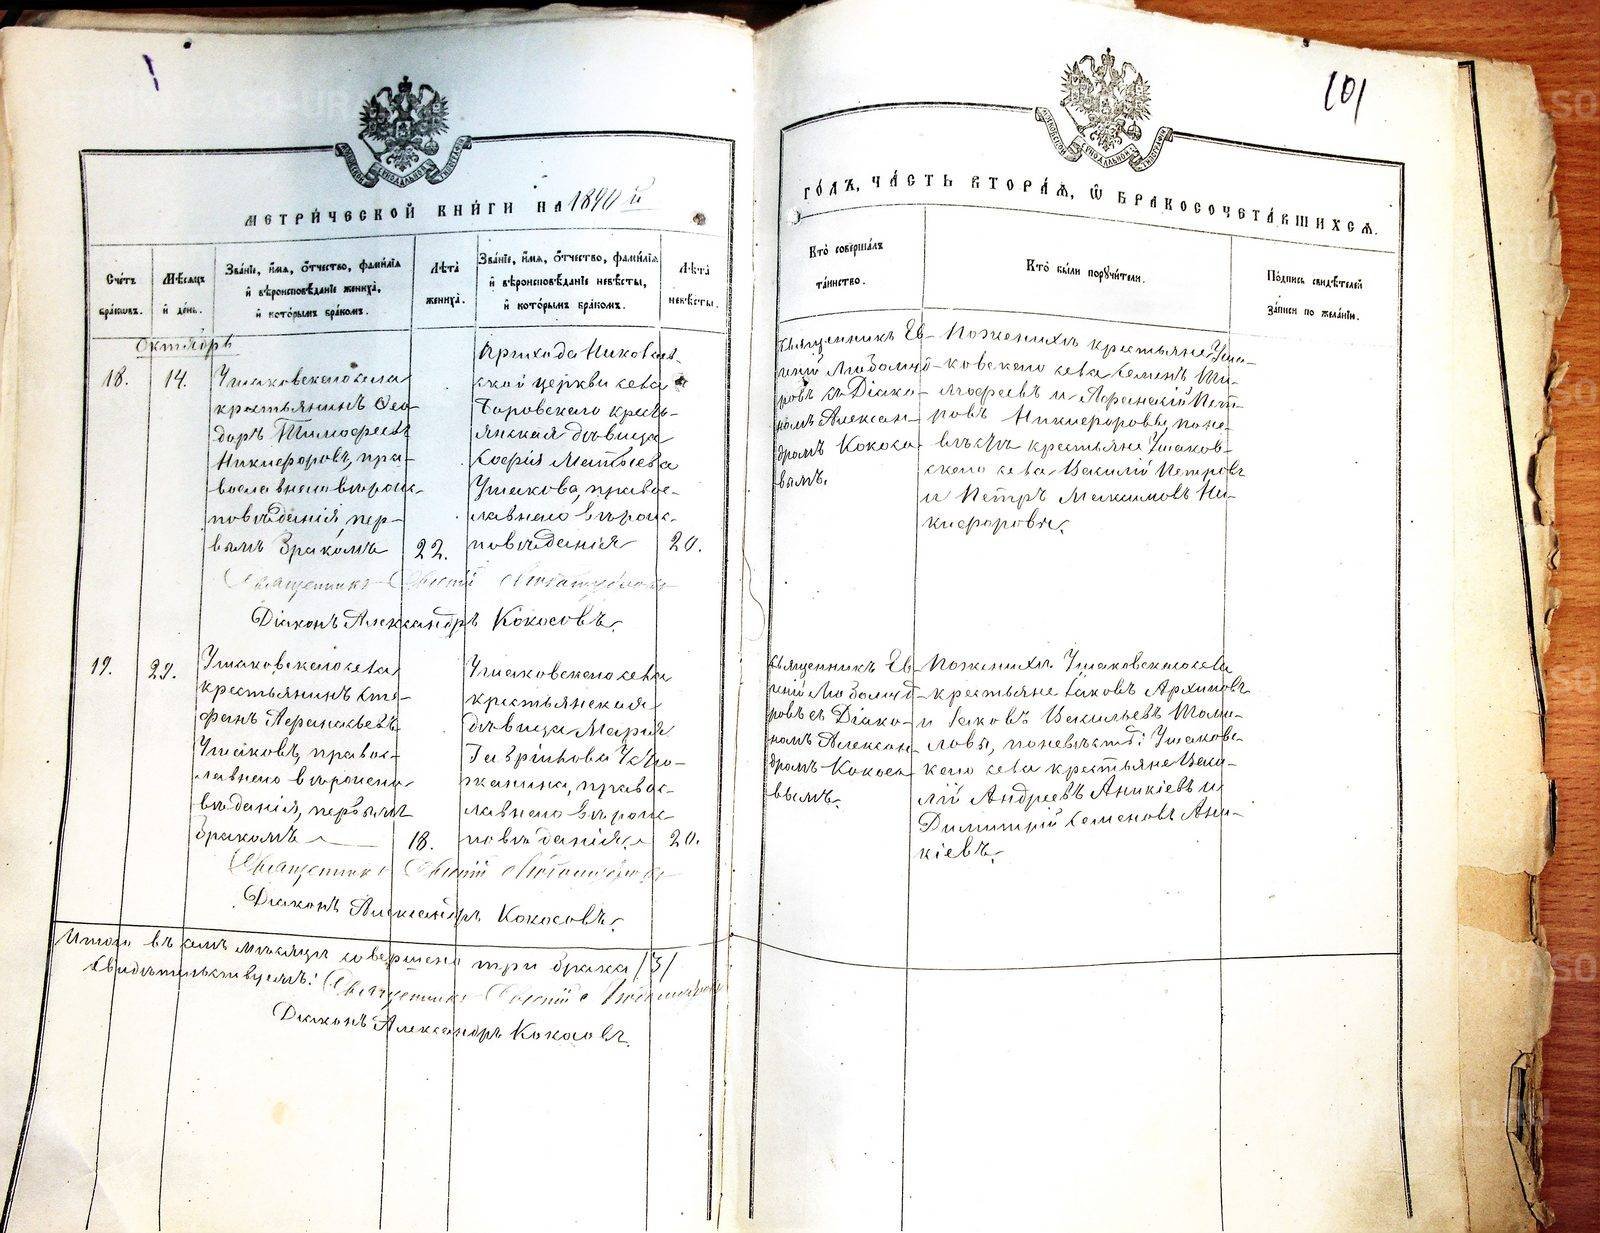 101
МЕТРИ́ЧЕСКОЙ КНИ́ГИ НА 1890 й
ГО́ДЪ, ЧА́СТЬ ВТОРА́Я, Ѿ БРАКОСОЧЕТА́ВШИХСЯ.
Сче́тъ бра́ковъ.
Мѣ́сяцъ и҆ де́нь.
Зва́нїе, и҆́мя, ѻ҆́тчество, фами́лїя
и҆ вѣроисповѣ́данїе жениха̀,
и҆ кото́рымъ бра́комъ.
Лѣ́та жениха̀.
Зва́нїе, и҆́мя, ѻ҆́тчество, фами́лїя
и҆ вѣроисповѣ́данїе невѣ́сты,
и҆ кото́рымъ бра́комъ.
Лѣ́та невѣ́сты.
Кто̀ соверша́лъ
та́инство.
Кто̀ бы́ли порꙋчи́тели.
По́дпись свидѣ́телей
за́писи по жела́нїи.
Октябрь
18.
14.
Ушаковскаго села
крестьянинъ Ѳео-
доръ Тимофеевъ
Никифоровъ, пра-
вославнаго вѣроис-
повѣданія, пер-
вымъ бракомъ
22.
Прихода Николаев-
ской церкви села
Боровскаго кресть-
янская дѣвица
Софія Матѳіева
Ушакова, правос-
лавнаго вѣроис-
повѣданія
20.
Священникъ Ев-
гений Любомуд-
ровъ съ Діако-
номъ Алексан-
дромъ Кокосо-
вымъ.
По женихѣ крестьяне Уша-
ковскаго села Семенъ Ти-
мофеевъ и Афанасій Пет-
ровъ Никифоровы, по не-
вѣстѣ крестьяне Ушаков-
скаго села Василій Петровъ
и Петръ Максимовъ Ни-
кифоровы.
Священникъ Евгеній Любомудровъ
Діаконъ Александръ Кокосовъ.
19.
Ушаковскаго села
крестьянинъ Сте-
фанъ Афанасьевъ
Ушаковъ, правос-
лавнаго вѣроиспо-
вѣданія, первымъ
бракомъ
18.
Ушаковскаго села
крестьянская
дѣвица Марія
Гавріилова
правос-
лавнаго вѣроис-
повѣданія.
20.
Священникъ Ев-
гений Любомуд-
ровъ съ Діако-
номъ Алексан-
дромъ Кокосо-
вымъ.
По женихѣ Ушаковскаго села
крестьяне Іаковъ Архиповъ
и Іаковъ Васильевъ
по невѣстѣ: Ушаковс-
каго села крестьяне Васи-
лій Андреевъ Аникіевъ и
Димитрій Семеновъ Ани-
кіевъ.
Священникъ Евгеній Любомудровъ
Діаконъ Александръ Кокосовъ.
Итого въ семъ мѣсяцѣ совершено три брака /3/
Свидѣтельствуемъ: Священникъ Евгеній Любомудровъ
Діаконъ Александръ Кокосовъ.